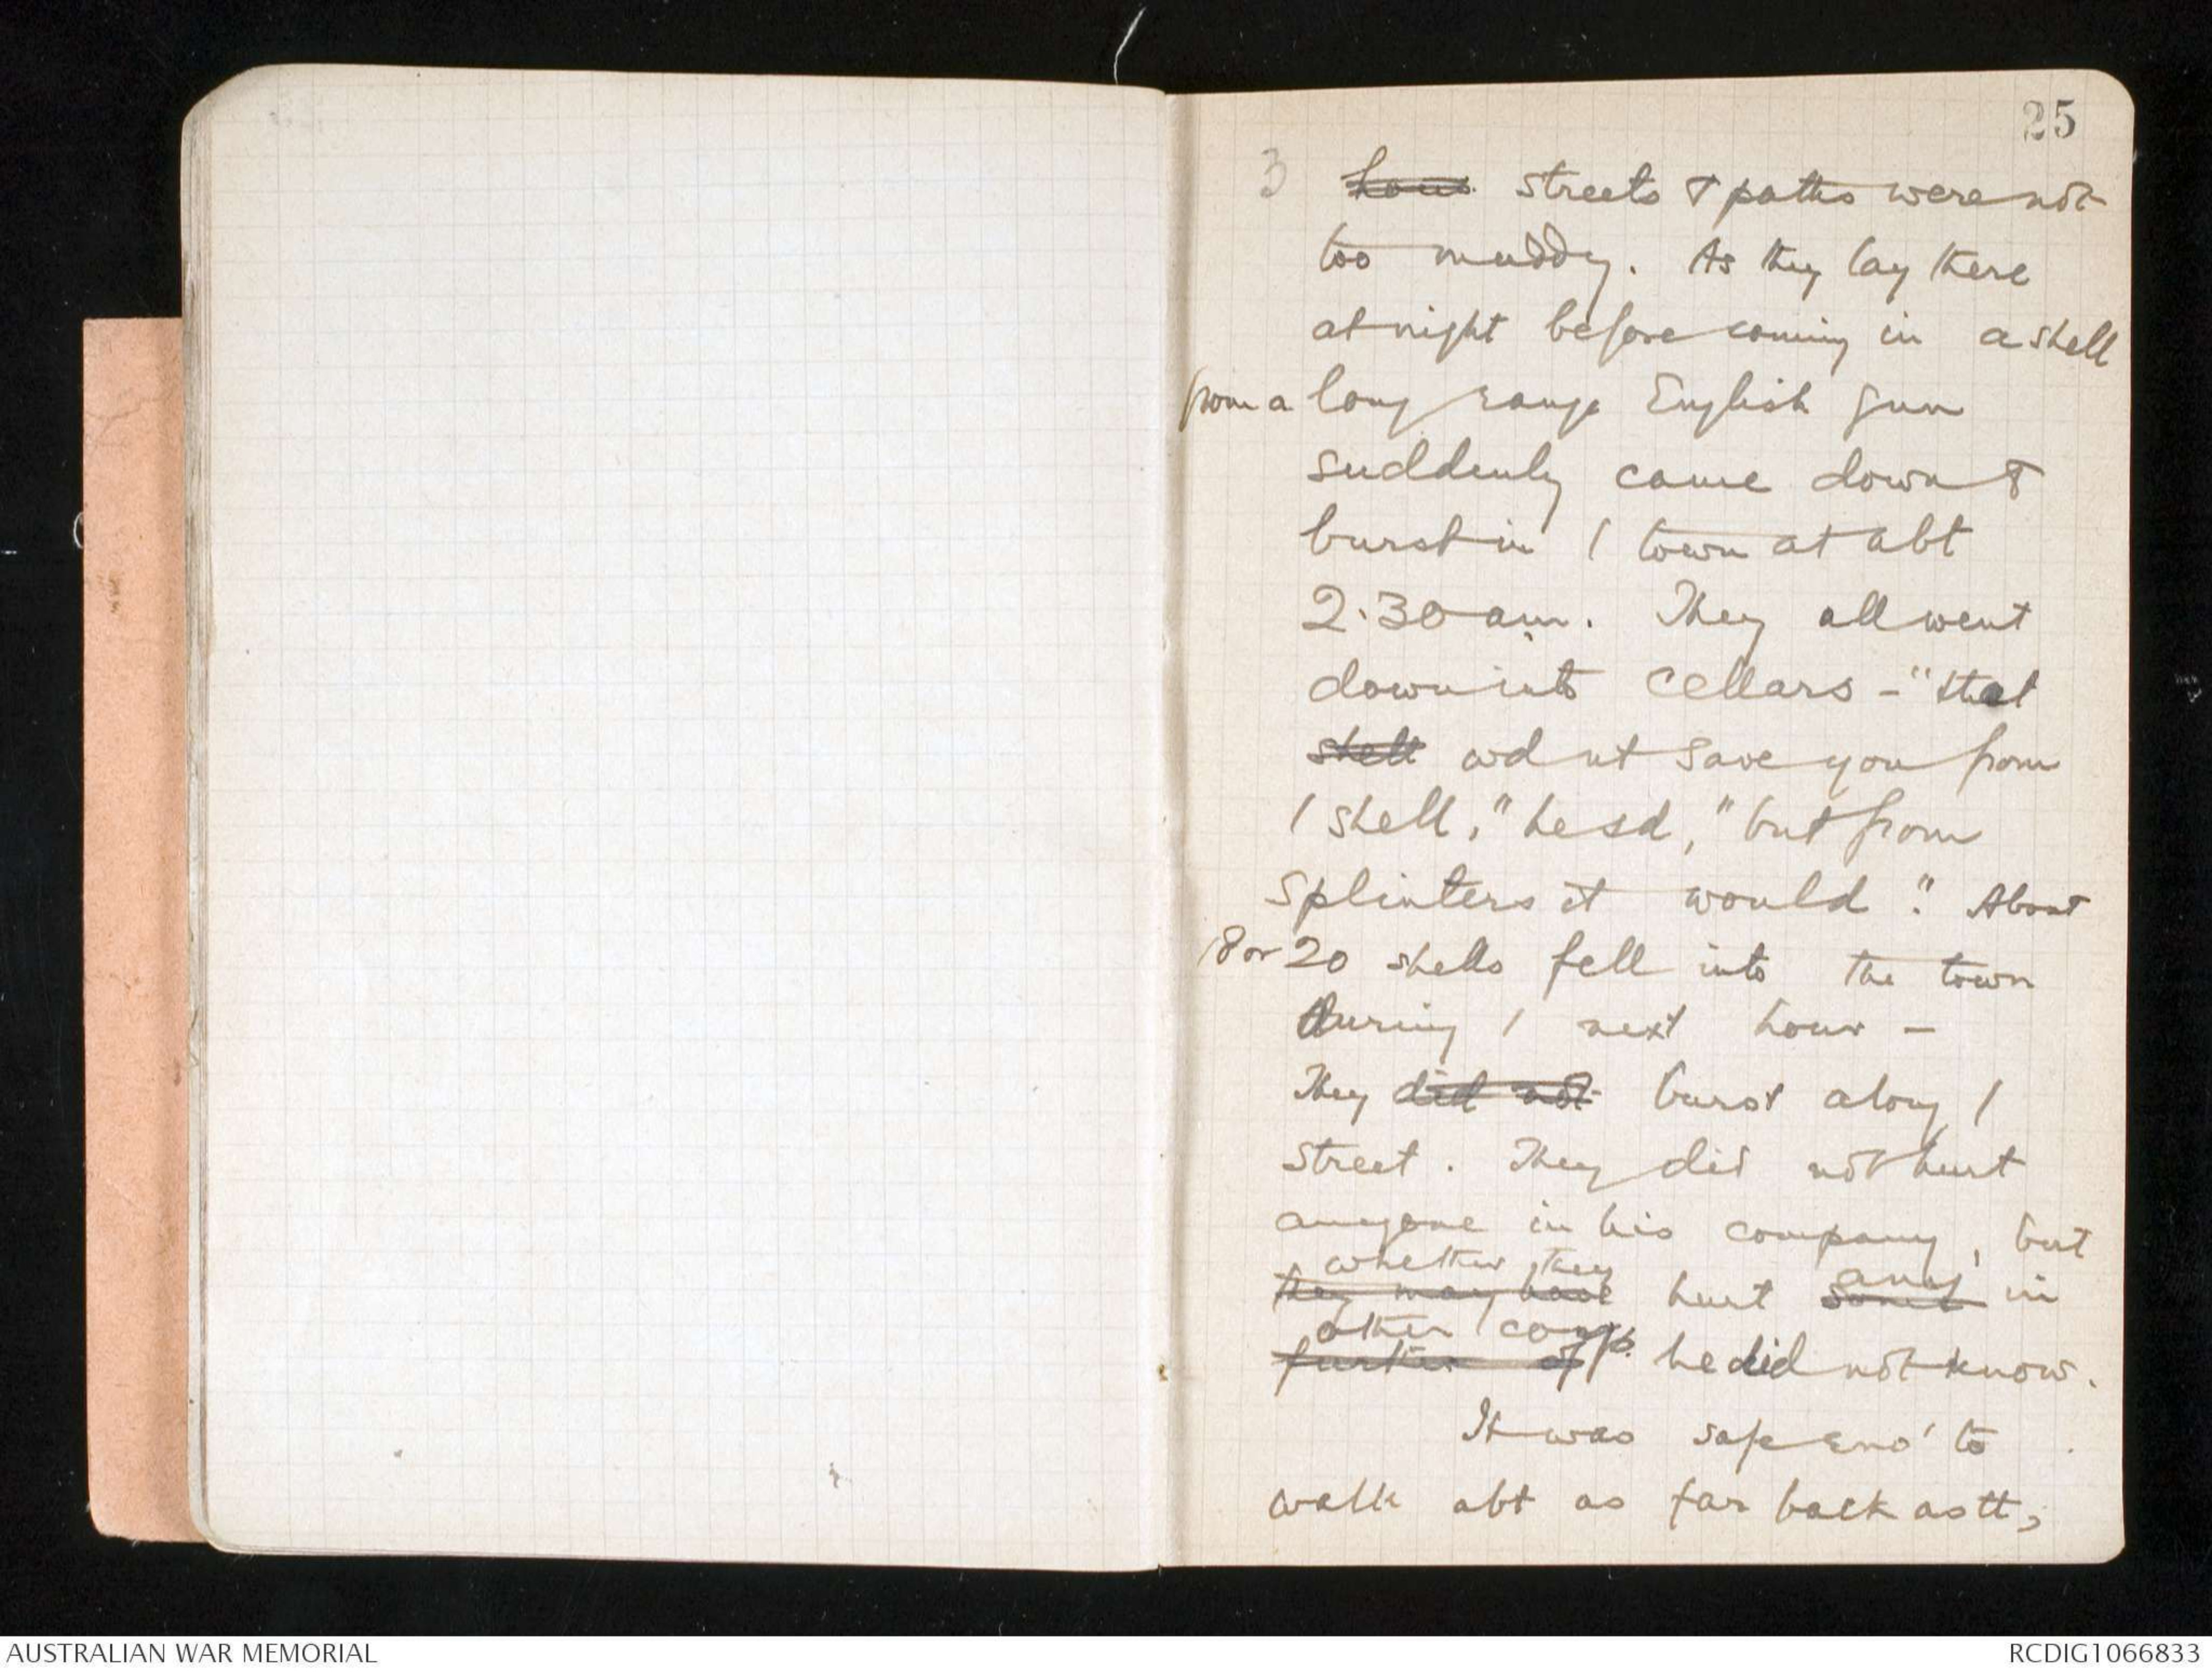 25
3 hous streets & paths were not
too muddy. As they lay there
at night before coming in a shell
from a long range English gun
suddenly came down &
burst in / town at abt
2.30 am. They all went
down into cellars - "that
shell wd nt save you from
/ shell," he sd, "but from
splinters it would". About
18 or 20 shells fell into the town
during / next hour -
They did not burst along /
street. They did not hurt
anyone in his company, but
whether they
they may have hurt some any in
other comps.
further off he did not know.
It was safe eno' to
walk abt as far back as tt,
AUSTRALIAN WAR MEMORIAL
RCDIG1066833